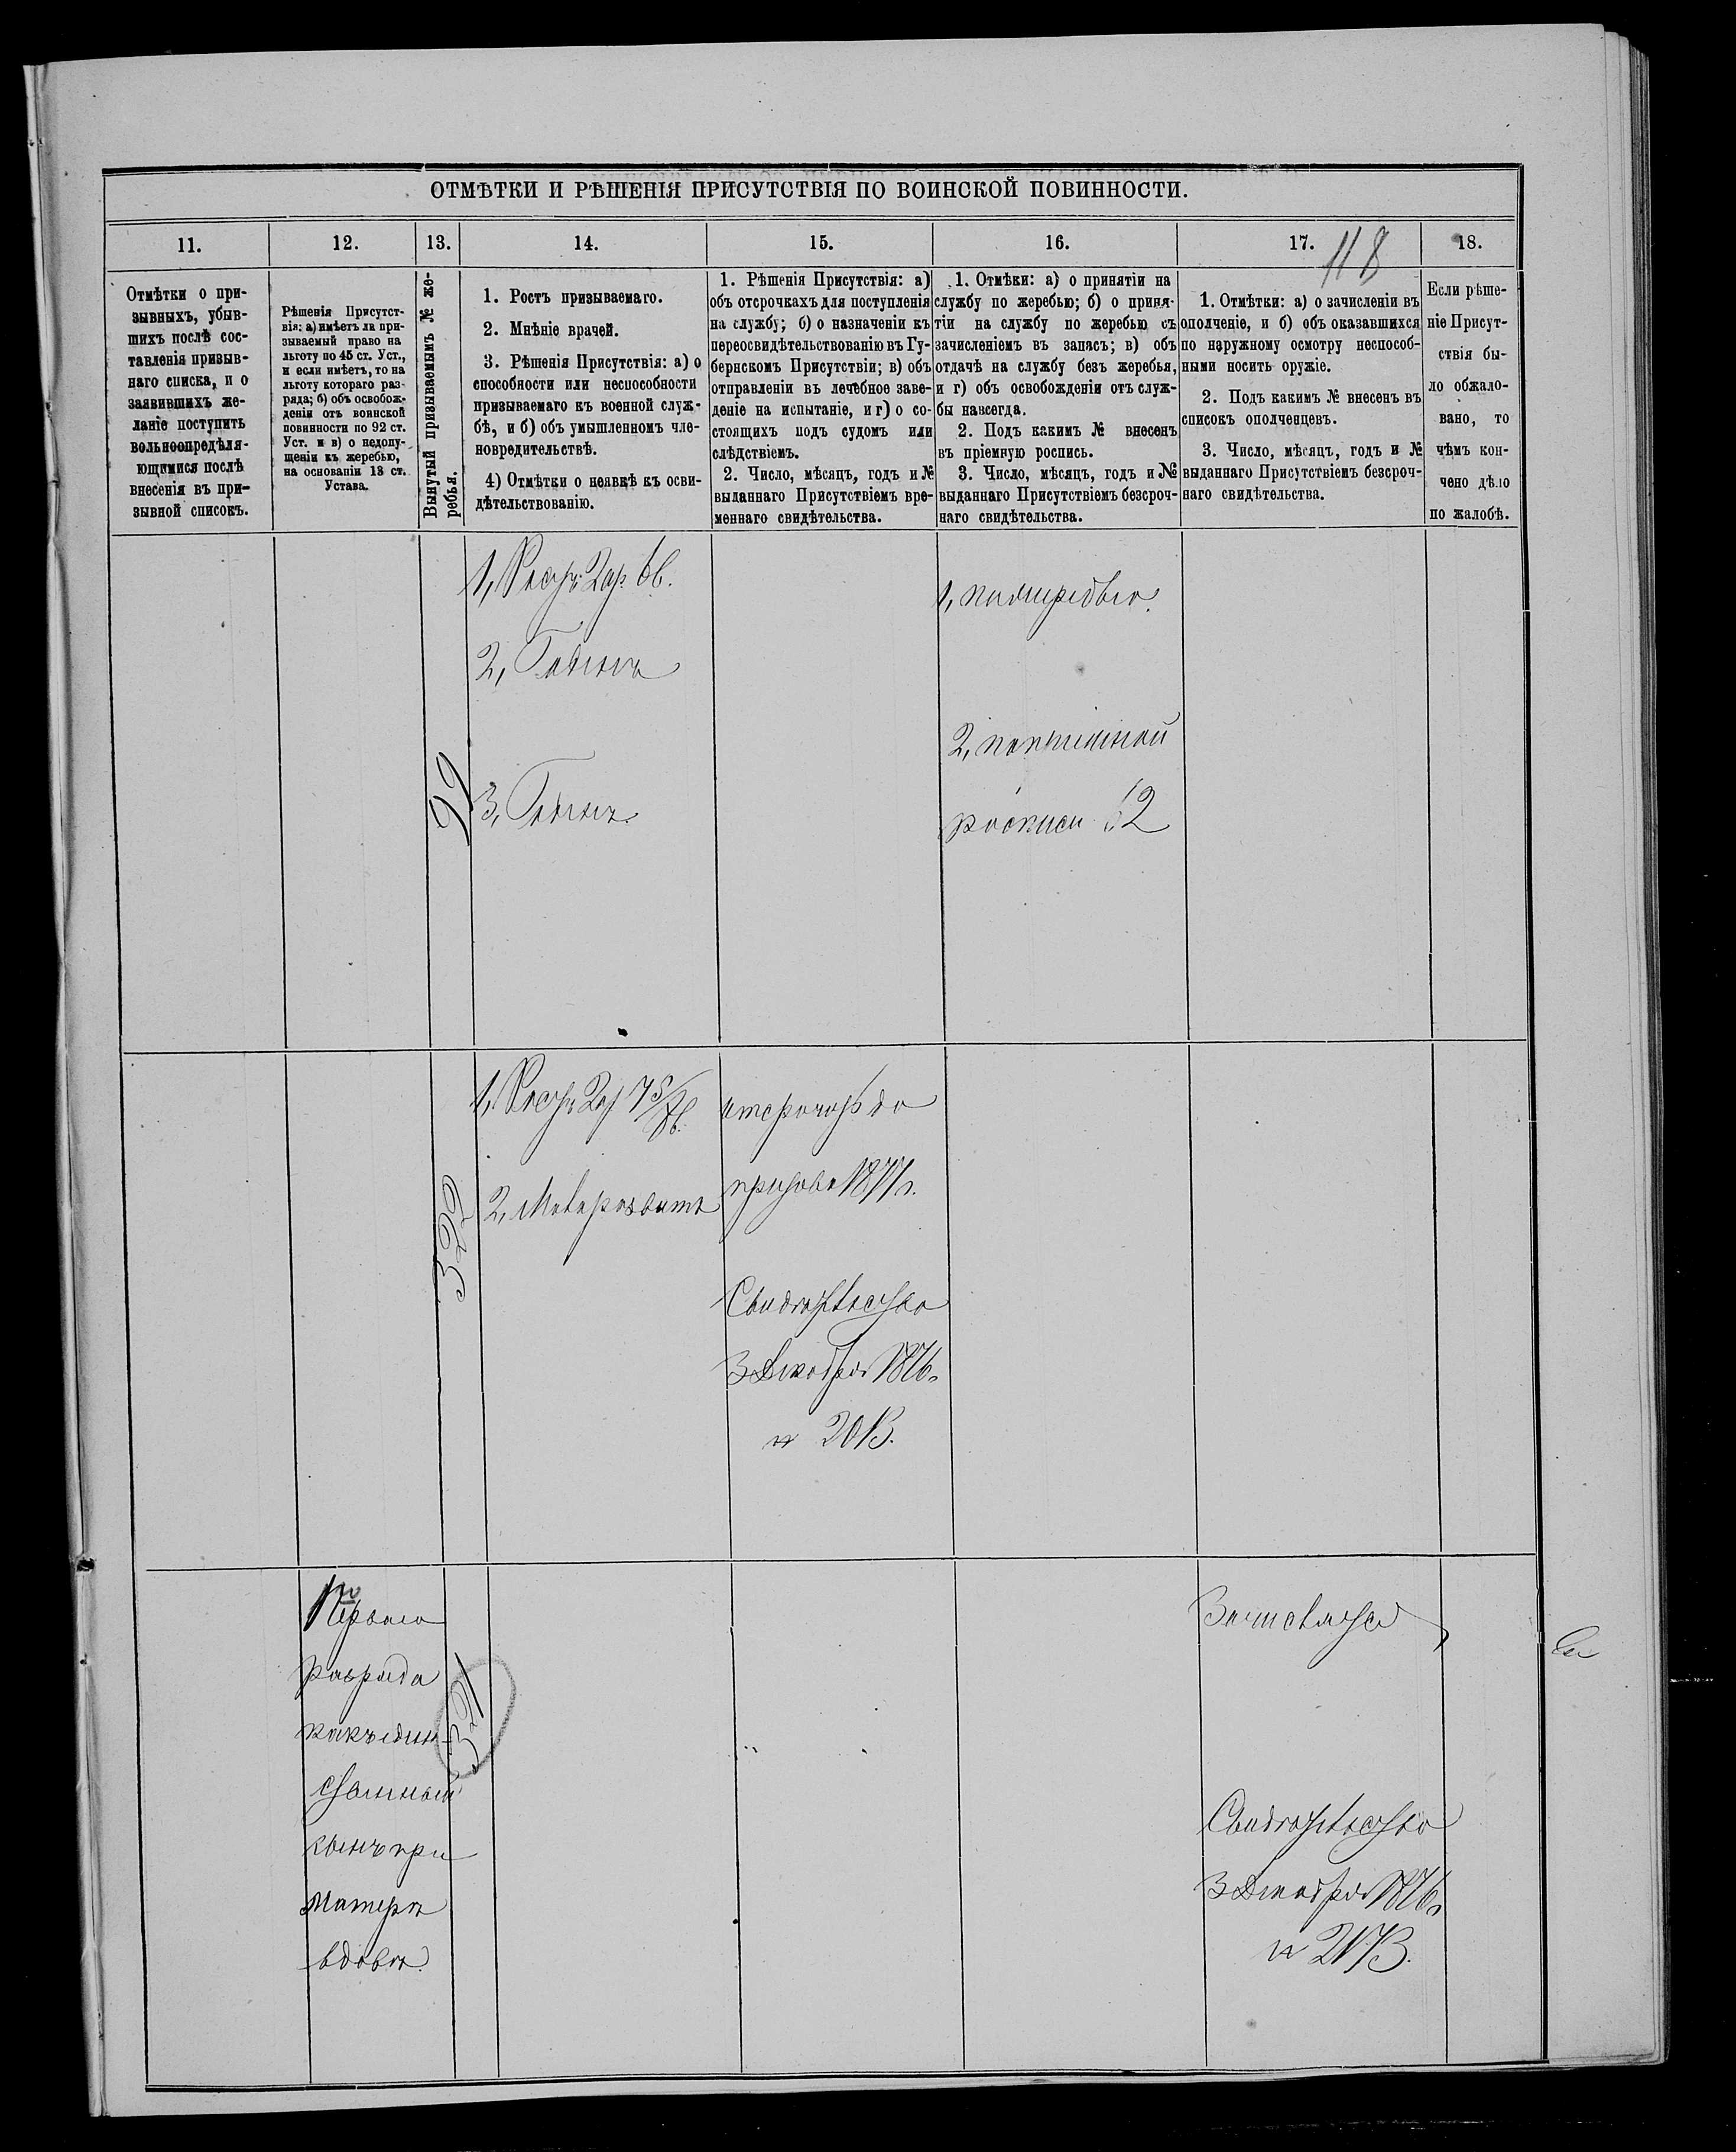 ОТМѢТКИ И РѢШЕНІЯ ПРИСУТСТВІЯ ПО ВОИНСКОЙ ПОВИННОСТИ.
11.
12.
13.
14.
15.
16.
17.
118
18.
Отмѣтки о при-
зывныхъ, убыв-
шихъ послѣ сос-
тавленія призыв-
наго списка, и о
заявившихъ же-
ланіе поступить
вольноопредѣля-
ющимися послѣ
внесенія въ при-
зывной списокъ.
Рѣшенія Присутст-
вія: а) имѣетъ ли при-
зываемый право на
льготу по 45 ст. Уст.,
и если имѣетъ, то на
льготу котораго раз-
ряда; б) объ освобож-
деніи отъ воинской
повинности по 92 ст.
Уст. и в) о недопу-
щеніи къ жеребью,
на основаніи 13 ст.
Устава.
Вынутый призываемымъ № же-
ребья.
1. Ростъ призываемаго.
2. Мнѣніе врачей.
3. Рѣшенія Присутствія: а) о
способности или неспособности
призываемаго къ военной служ-
бѣ, и б) объ умышленномъ чле-
новредительствѣ.
4) Отмѣтки о неявкѣ къ осви-
дѣтельствованію.
1. Рѣшенія Присутствія: а)
объ отсрочкахъ для поступленія
на службу; б) о назначеніи къ
переосвидѣтельствованію въ Гу-
бернскомъ Присутствіи; в) объ
отправленіи въ лечебное заве-
деніе на испытаніе, и г) о со-
стоящихъ подъ судомъ или
слѣдствіемъ.
2. Число, мѣсяцъ, годъ и №
выданнаго Присутствіемъ вре-
меннаго свидѣтельства.
1. Отмѣки: а) о принятіи на
службу по жеребью; б) о приня-
тіи на службу по жеребью съ
зачисленіемъ въ запасъ; в) объ
отдачѣ на службу безъ жеребья,
и г) объ освобожденіи отъ служ-
бы навсегда.
2. Подъ какимъ № внесенъ
въ пріемную роспись.
3. Число, мѣсяцъ, годъ и №
выданнаго Присутствіемъ безсроч-
наго свидѣтельства.
1. Отмѣтки: а) о зачисленіи въ
ополченіе, и б) объ оказавшихся
по наружному осмотру неспособ-
ными носить оружіе.
2. Подъ какимъ № внесенъ въ
списокъ ополченцевъ.
3. Число, мѣсяцъ, годъ и №
выданнаго Присутствіемъ безсроч-
наго свидѣтельства.
Если рѣше-
ніе Присут-
ствія бы-
ло обжало-
вано, то
чѣмъ кон-
чено дѣло
по жалобѣ.
92
1, Ростъ 2 ар. 6 в.
2, Годенъ
3, Годенъ.
1, по жеребью.
2, по пріемной
росписи 62
322
1, Ростъ 2 ар
2, Маловозмужалъ
отсрочить до
призыва 1877 г.
Свидѣтельство
3 Декабря 1876 г.
№ 2013.
Перваго
разряда
какъ един-
ственный
сынъ при
матери
вдовѣ.
321
Зачисляется
Свидѣтельство
3 Декабря 1876 г.
№ 2173.